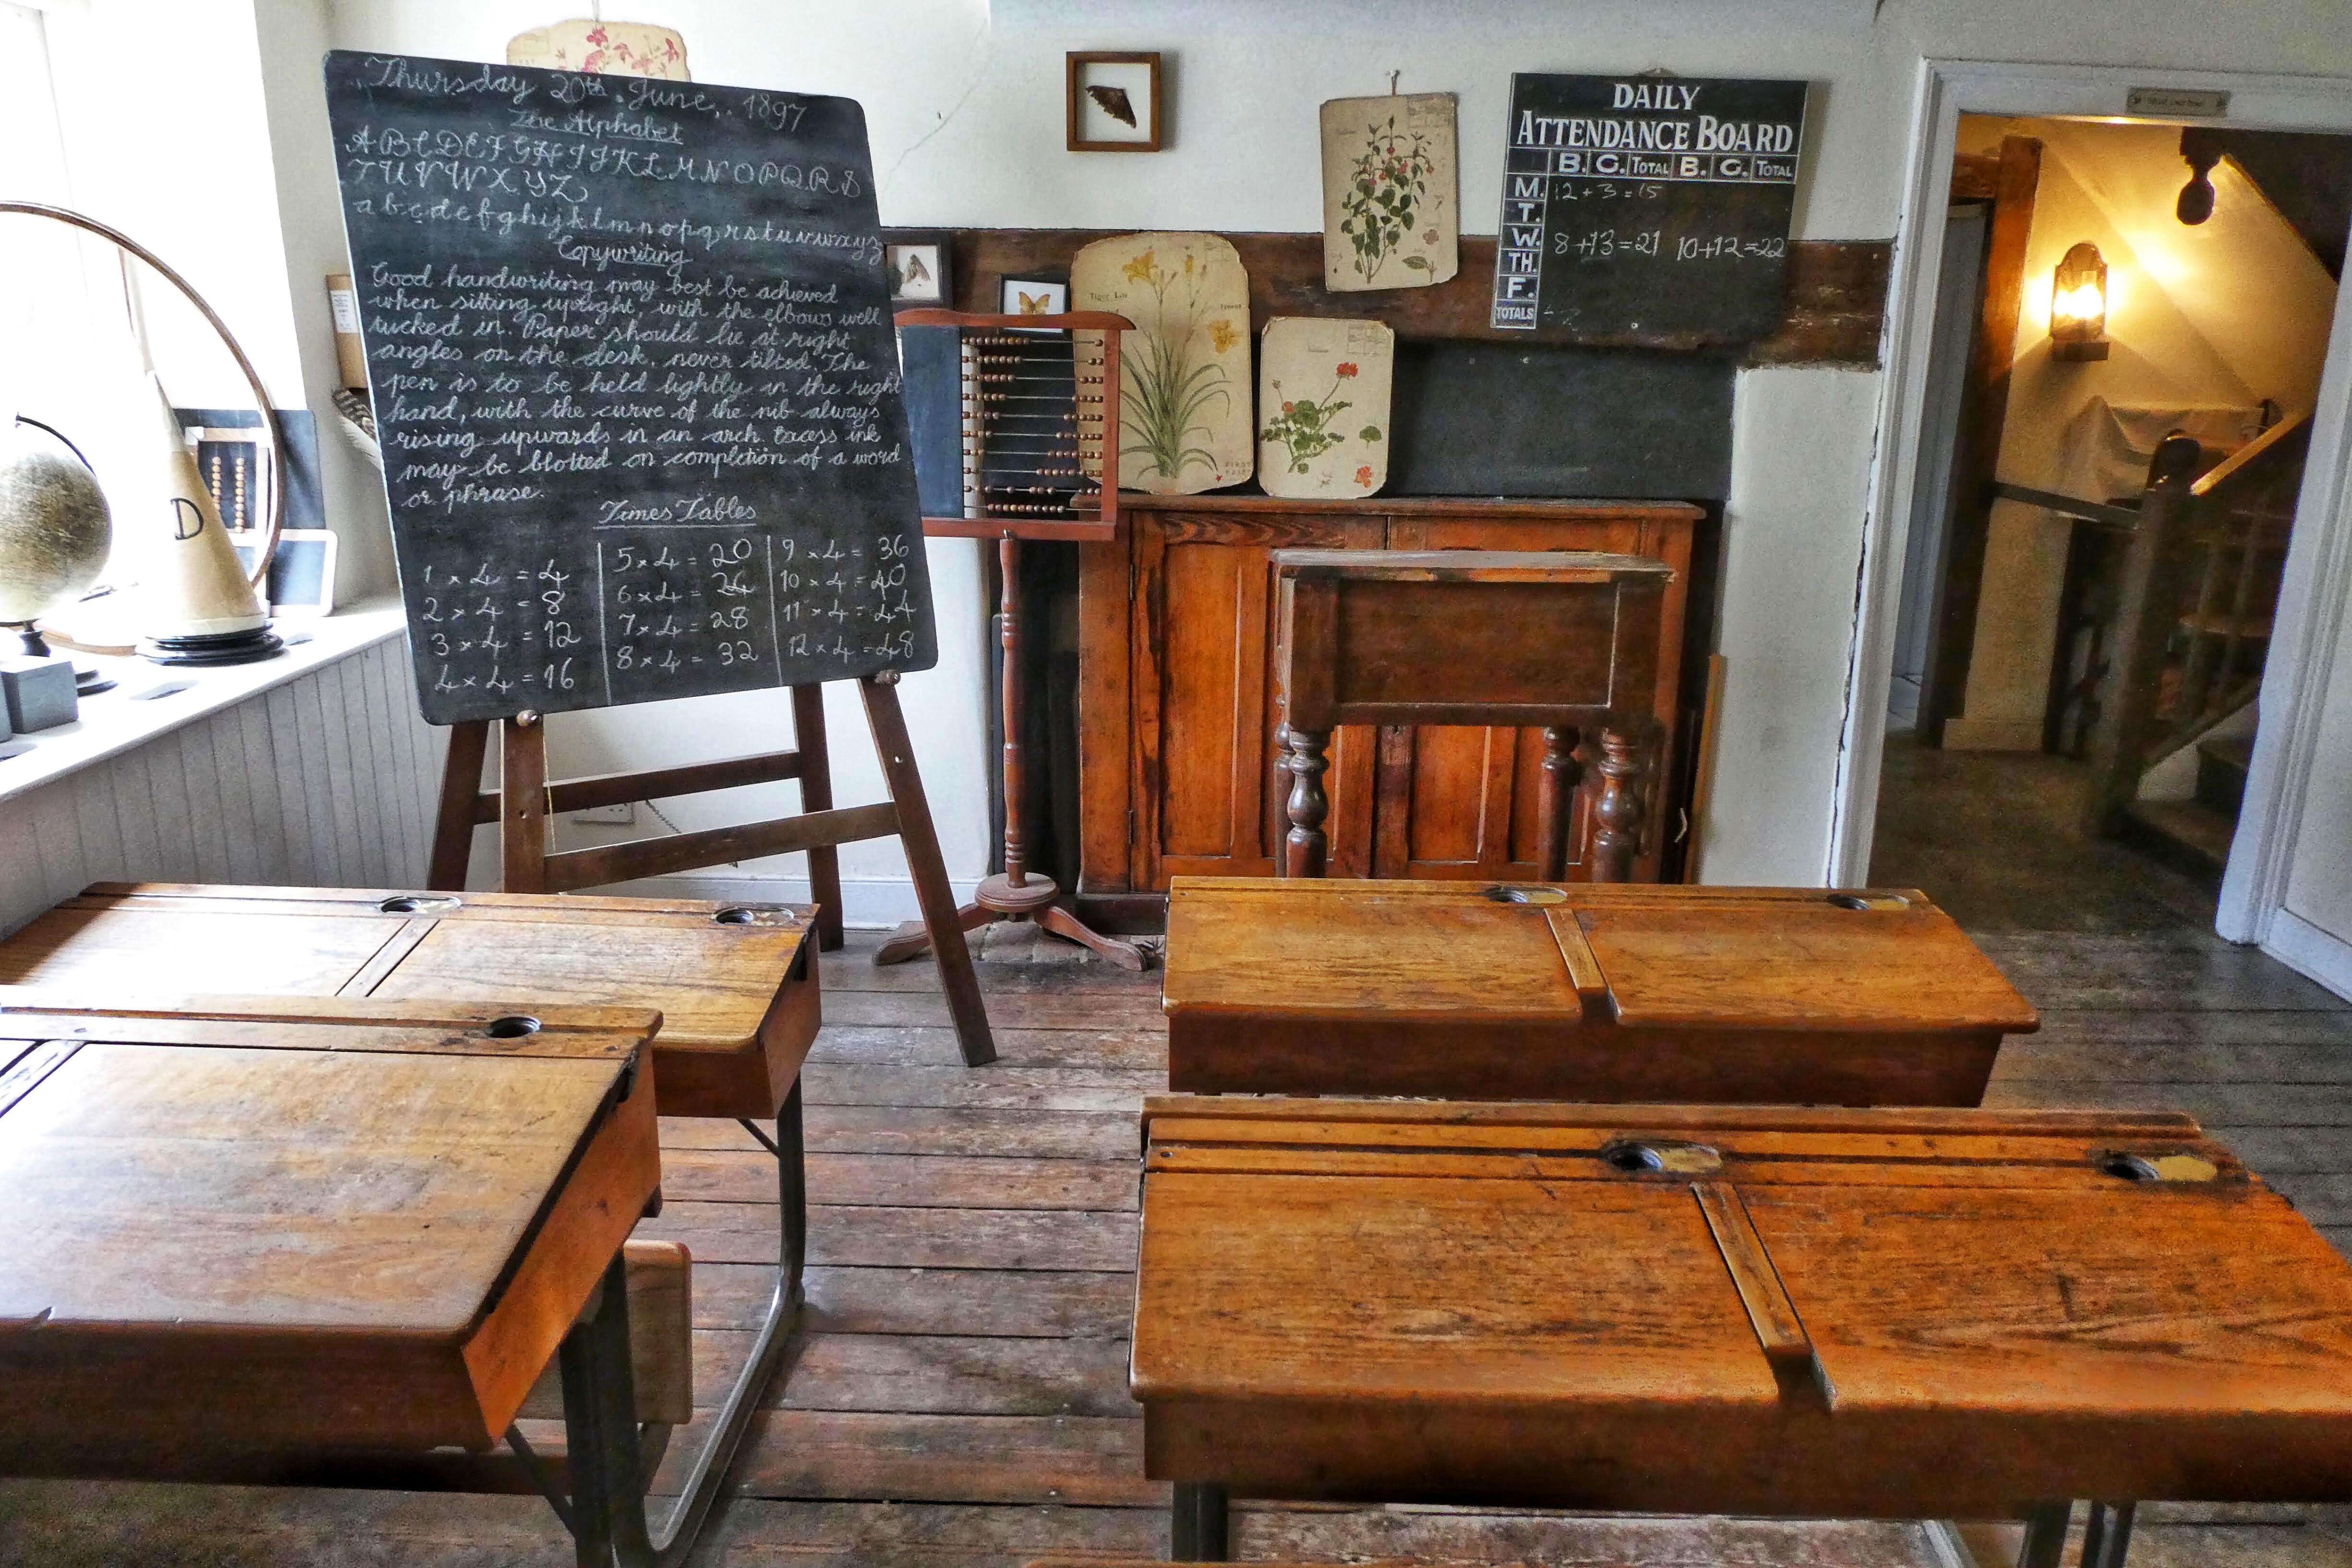 Thursday 20th June, 1897
The Alphabet
A B C D E F G H I J K L M N O P Q R S
T U V W X Y Z
a b c d e f g h i j k l m n o p q r s t u v w x y z
Copywriting
Good handwriting may best be achieved
when sitting upright, with the elbows well
tucked in. Paper should lie at right
angles on the desk, never tilted. The
pen is to be held lightly in the right
hand, with the curve of the nib always
rising upwards in an arch. Excess ink
may be blotted on completion of a word
or phrase.
Times Tables
1 × 4 = 4
2 × 4 = 8
3 × 4 = 12
4 × 4 = 16
5 × 4 = 20
6 × 4 = 24
7 × 4 = 28
8 × 4 = 32
9 × 4 = 36
10 × 4 = 40
11 × 4 = 44
12 × 4 = 48
D
Tiger Lily
DAILY
ATTENDANCE BOARD
B. G. TOTAL B. G. TOTAL
M. 12 + 3 = 15
T.
W. 8 + 13 = 21 10 + 12 = 22
TH.
F.
TOTALS